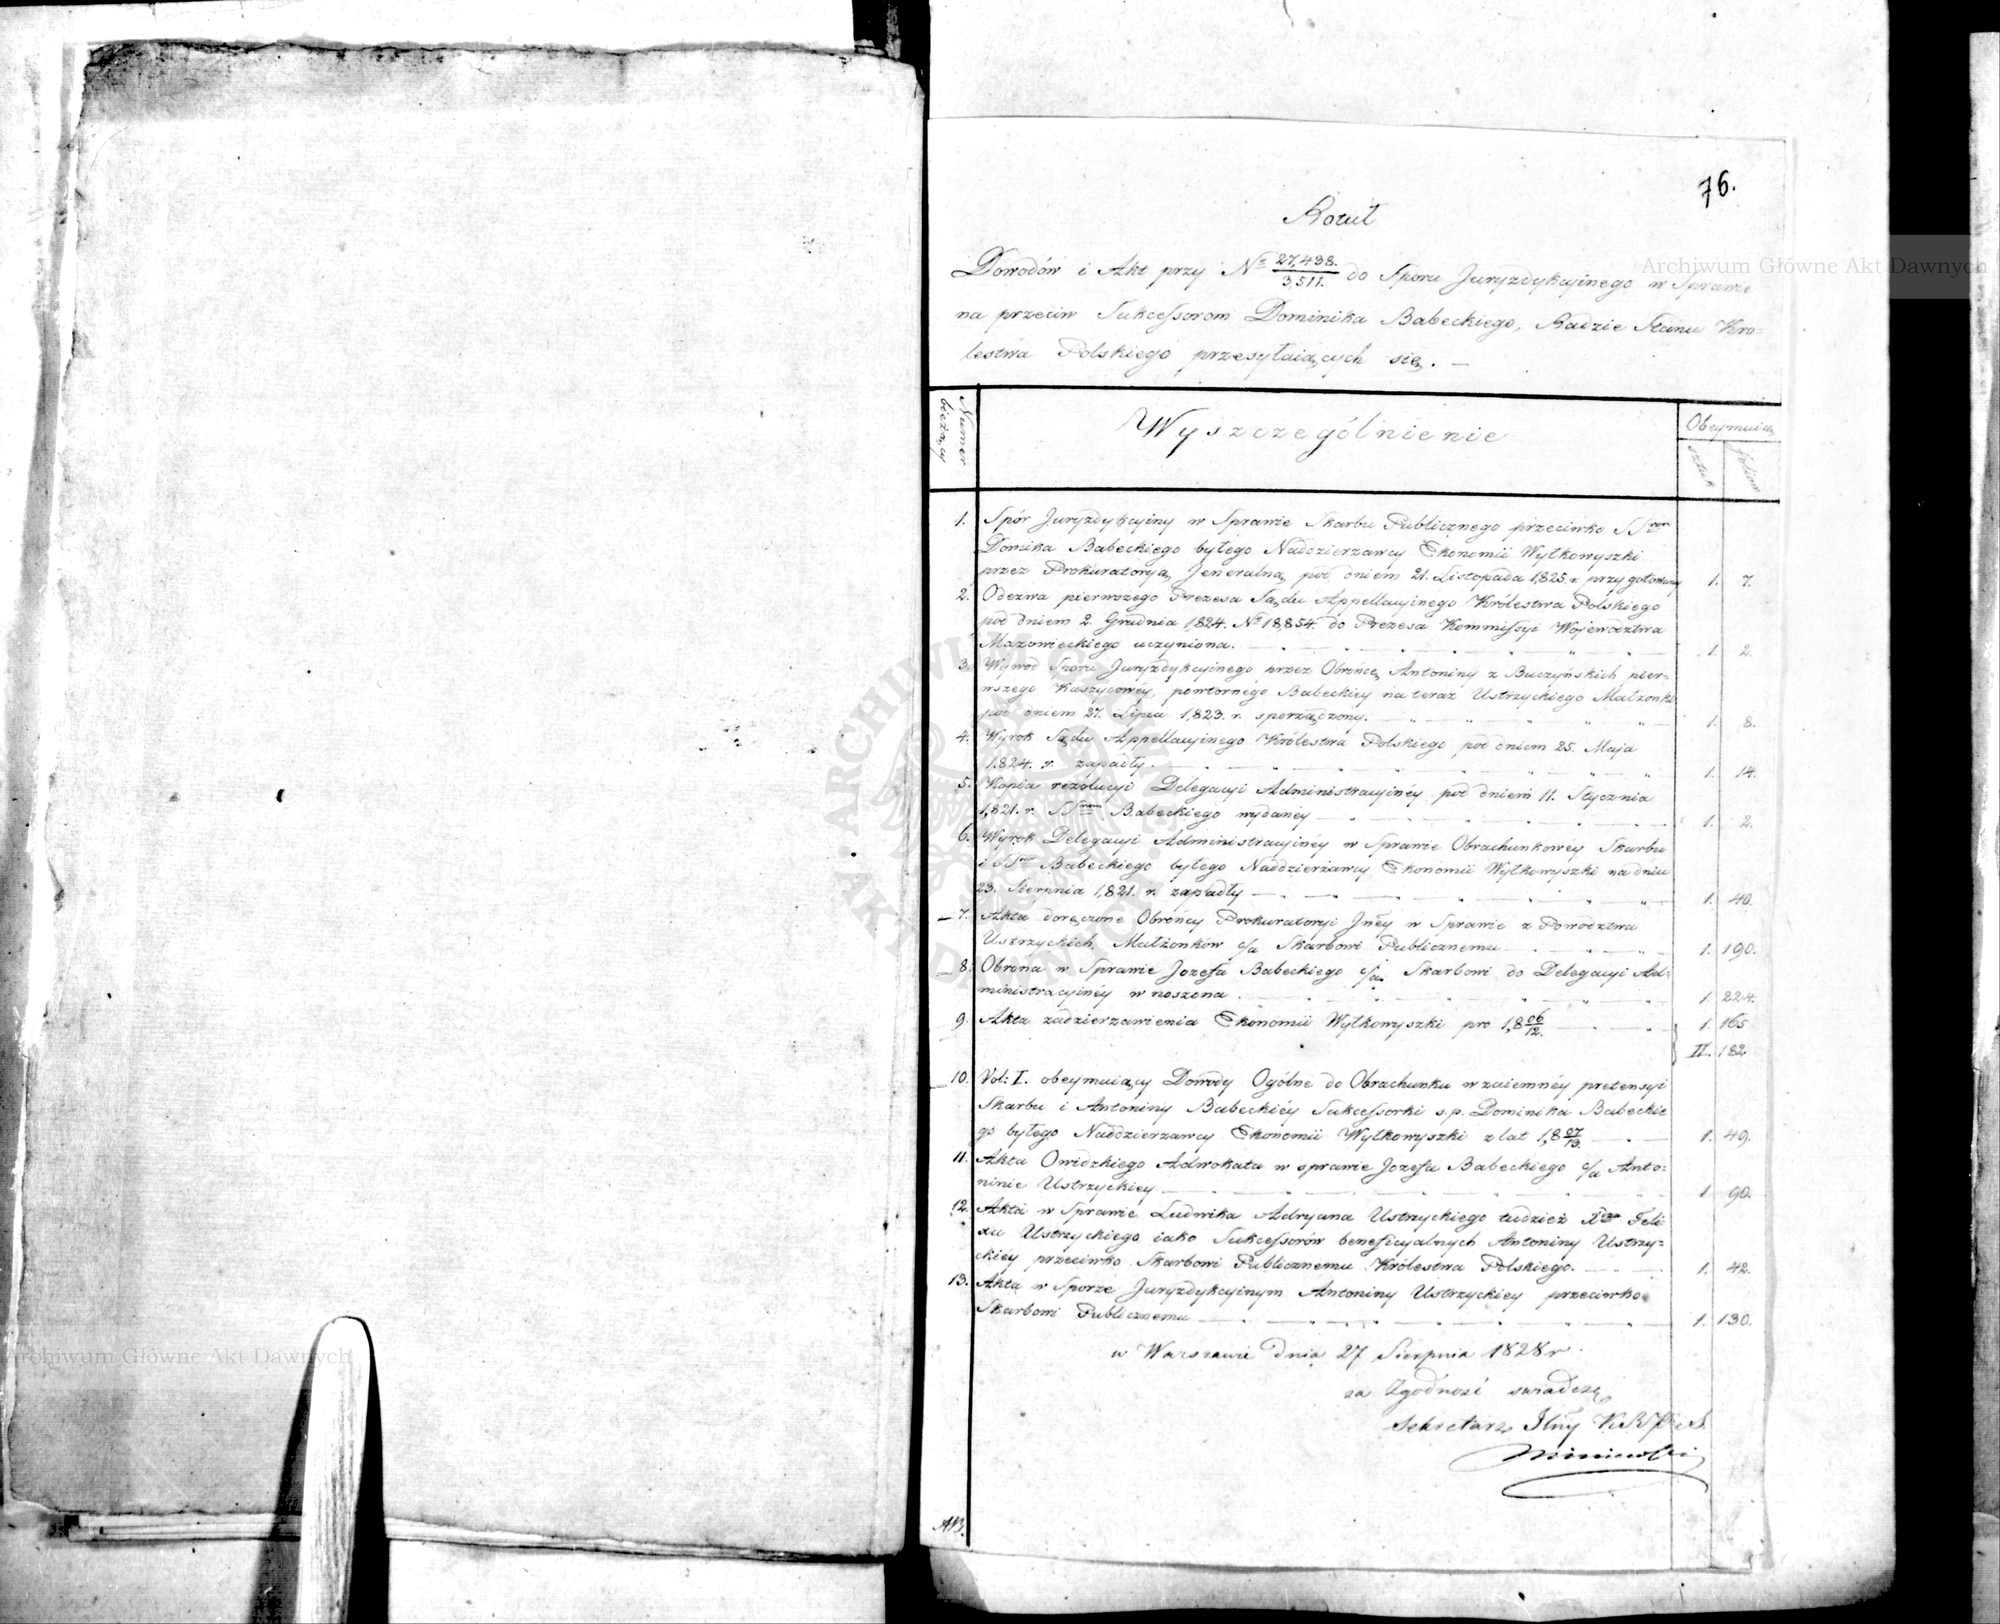 76.
Rotuł
Dowodów i Akt przy No 27,438./3,511. do Sporu Juryzdykcyinego w Sprawie
na przeciw Sukcessorom Dominika Babeckiego, Radzie Stanu Kro=
lestwa Polskiego przesyłaiących się. —
Numer bieżący
Wyszczególnienie
Obeymuią
sztuk
foliów
1. Spór Juryzdykcyiny w Sprawie Skarbu Publicznego przeciwko SSrom
Domika Babeckiego byłego Naddzierzawcy Ekonomii Wyłkowyszki
przez Prokuratoryą Jeneralną pod dniem 21. Listopada 1,825. r. przygotowany 1. 7.
2. Odezwa pierwszego Prezesa Sądu Appellacyinego Królestwa Polskiego
pod dniem 2. Grudnia 1,824. No 18,854. do Prezesa Kommissyi Wojewodztwa
Mazowieckiego uczyniona. 1. 2.
3. Wywod Sporu Juryzdykcyinego przez Obrońcę Antoniny z Buczyńskich pier=
wszego Kaszycowéy, powtornego Babeckiey na teraz Ustrzyckiego Małzonki
pod dniem 27. Lipca 1,823. r. sporządzony. 1. 8.
4. Wyrok Sądu Appellacyinego Królestwa Polskiego pod dniem 25. Maja
1.824. r. zapadły. 1. 14.
5. Kopia rezolucyi Delegacyi Administracyinéy pod dniem 11. Stycznia
1,821. r. SSrom Babeckiego wydanéy 1. 2.
6. Wyrok Delegacyi Administracyinéy w Sprawie Obrachunkowéy Skarbu
i SSrów Babeckiego byłego Naddzierżawcy Ekonomii Wyłkowyszki na dniu
23. Sierpnia 1,821. r. zapadły 1. 40.
7. Akta doręczone Obrońcy Prokuratoryi Jnéy w Sprawie z Powodztwa
Ustrzyckich Małżonków c/a Skarbowi Publicznemu 1. 190.
8. Obrona w Sprawie Jozefa Babeckiego c/a. Skarbowi do Delegacyi Ad=
ministracyinéy wnoszona. 1. 224.
9. Akta zadzierzawienia Ekonomii Wyłkowyszki pro 1,8 06/12. 1. 165
II. 182.
10. Vol: I. obeymuiący Dowody Ogólne do Obrachunku wzaiemnéy pretensyi
Skarbu i Antoniny Babeckiéy Sukcessorki s.p. Dominika Babeckie
go byłego Naddzierzawcy Ekonomii Wyłkowyszki z lat 1,8 07/13. 1. 49.
11. Akta Owidzkiego Adwokata w sprawie Jozefa Babeckiego c/a Anto=
ninie Ustrzyckiey 1. 90.
12. Akta w Sprawie Ludwika Adryana Ustrzyckiego tudzież Xdza Feli
xa Ustrzyckiego iako Sukcessorów beneficyalnych Antoniny Ustrzy=
ckiey przeciwko Skarbowi Publicznemu Królestwa Polskiego. 1. 42.
13. Akta w Sporze Juryzdykcyinym Antoniny Ustrzyckiey przeciwko
Skarbowi Publicznemu 1. 130.
w Warszawie dnia 27 Sierpnia 1828 r.
za Zgodność swiadczę
Sekretarz
AB.
Archiwum Główne Akt Dawnych
Archiwum Główne Akt Dawnych